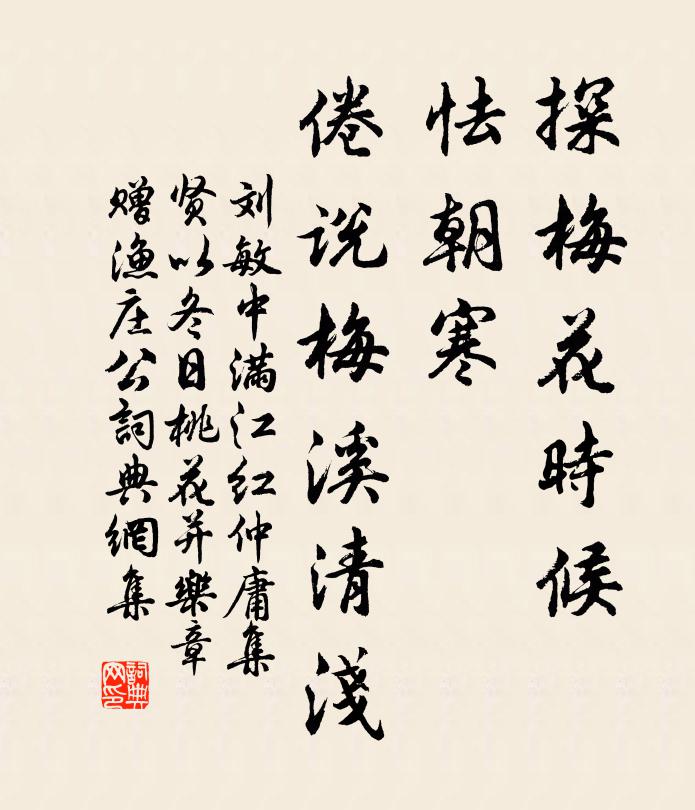 探梅花時候
怯朝寒
倦说梅溪清淺
刘敏中满江红仲庸集
贤以冬日桃花并樂章
赠漁庄公詞典網集
詞典
网印